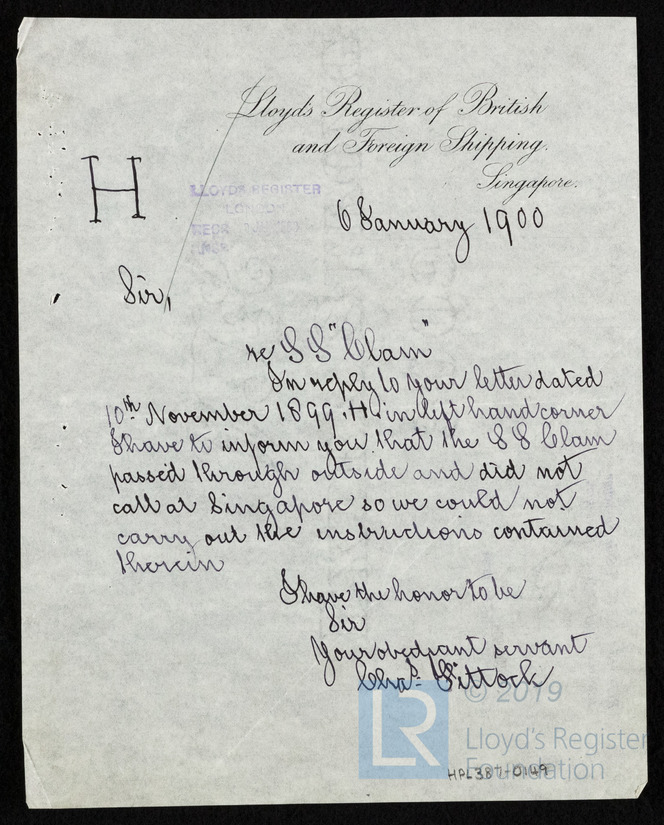 Lloyd's Register of British
and Foreign Shipping.
Singapore.
H
LLOYD'S REGISTER
LONDON
6 January 1900
Sir,
re SS "Clam"
In reply to your letter dated
10th November 1899 .H. in left hand corner
I have to inform you that the SS Clam
passed through outside and did not
call at Singapore so we could not
carry out the instructions contained
therein
I have the honor to be
Sir
Your obediant servant
Chas. Pittock
© 2019
LR
Lloyd's Register
Foundation
HPL387-0149